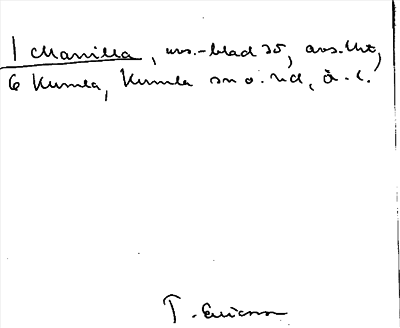 1 Manilla, avs.-blad 35, avs. Uto,
6 Kumla, Kumla sn o. hd, Ö. l.
T. Ericsson